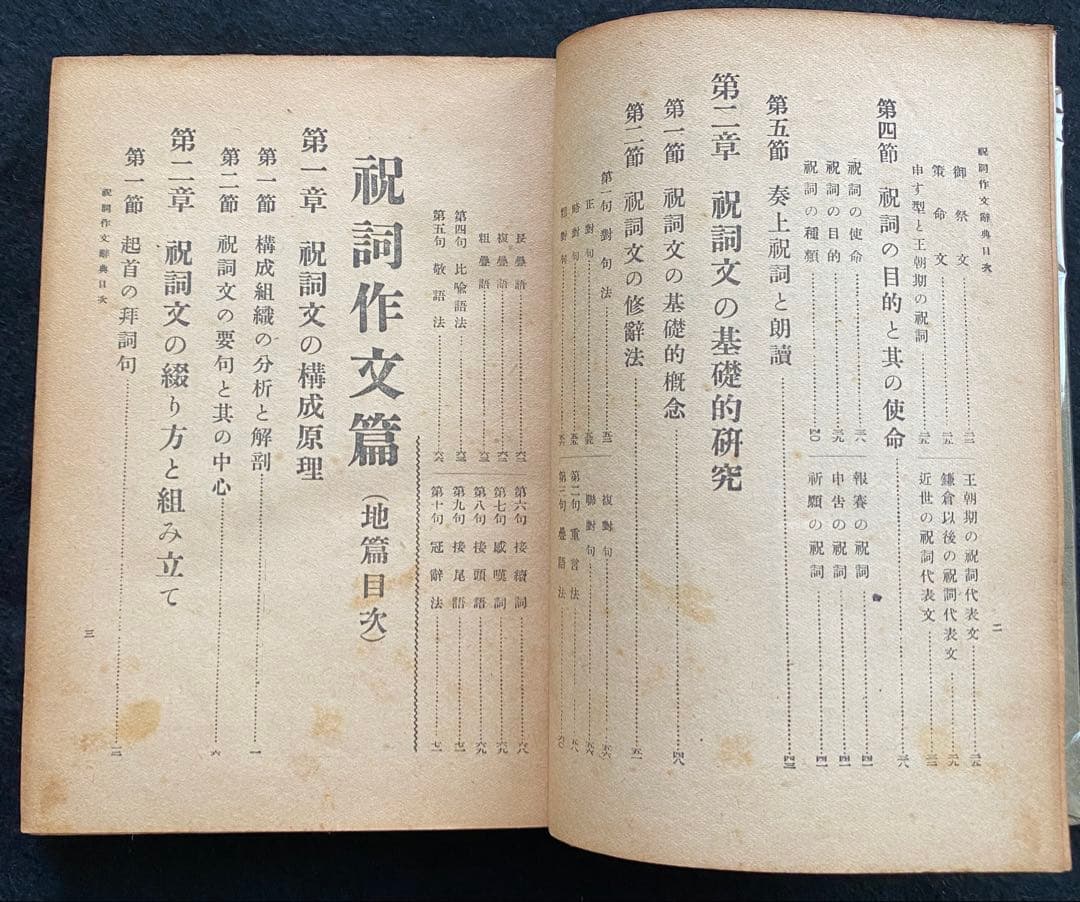 祝詞作文辭典目次
御祭文
策命文
申す型と王朝期の祝詞 二五
王朝期の祝詞代表文
鎌倉以後の祝詞代表文
近世の祝詞代表文
二
第四節 祝詞の目的と其の使命
祝詞の使命 三八
祝詞の目的 三九
祝詞の種類 四〇
報賽の祝詞 四一
申告の祝詞 四一
祈願の祝詞 四一
第五節 奏上祝詞と朗讀
第二章 祝詞文の基礎的研究
第一節 祝詞文の基礎的概念 四八
第二節 祝詞文の修辭法 五一
第一句 對句法
正對句
略對句
粗對句
複對句 五六
聯對句 五六
第二句 重言法 五八
第三句 疊語法 六〇
長疊語
複疊語
粗疊語
第四句 比喩語法
第五句 敬語法
第六句 接續詞 六八
第七句 感嘆詞 六九
第八句 接頭語 六九
第九句 接尾語
第十句 冠辭法
祝詞作文篇(地篇目次)
第一章 祝詞文の構成原理
第一節 構成組織の分析と解剖 一
第二節 祝詞文の要句と其の中心 六
第二章 祝詞文の綴り方と組み立て
第一節 起首の拜詞句
祝詞作文辭典目次
三